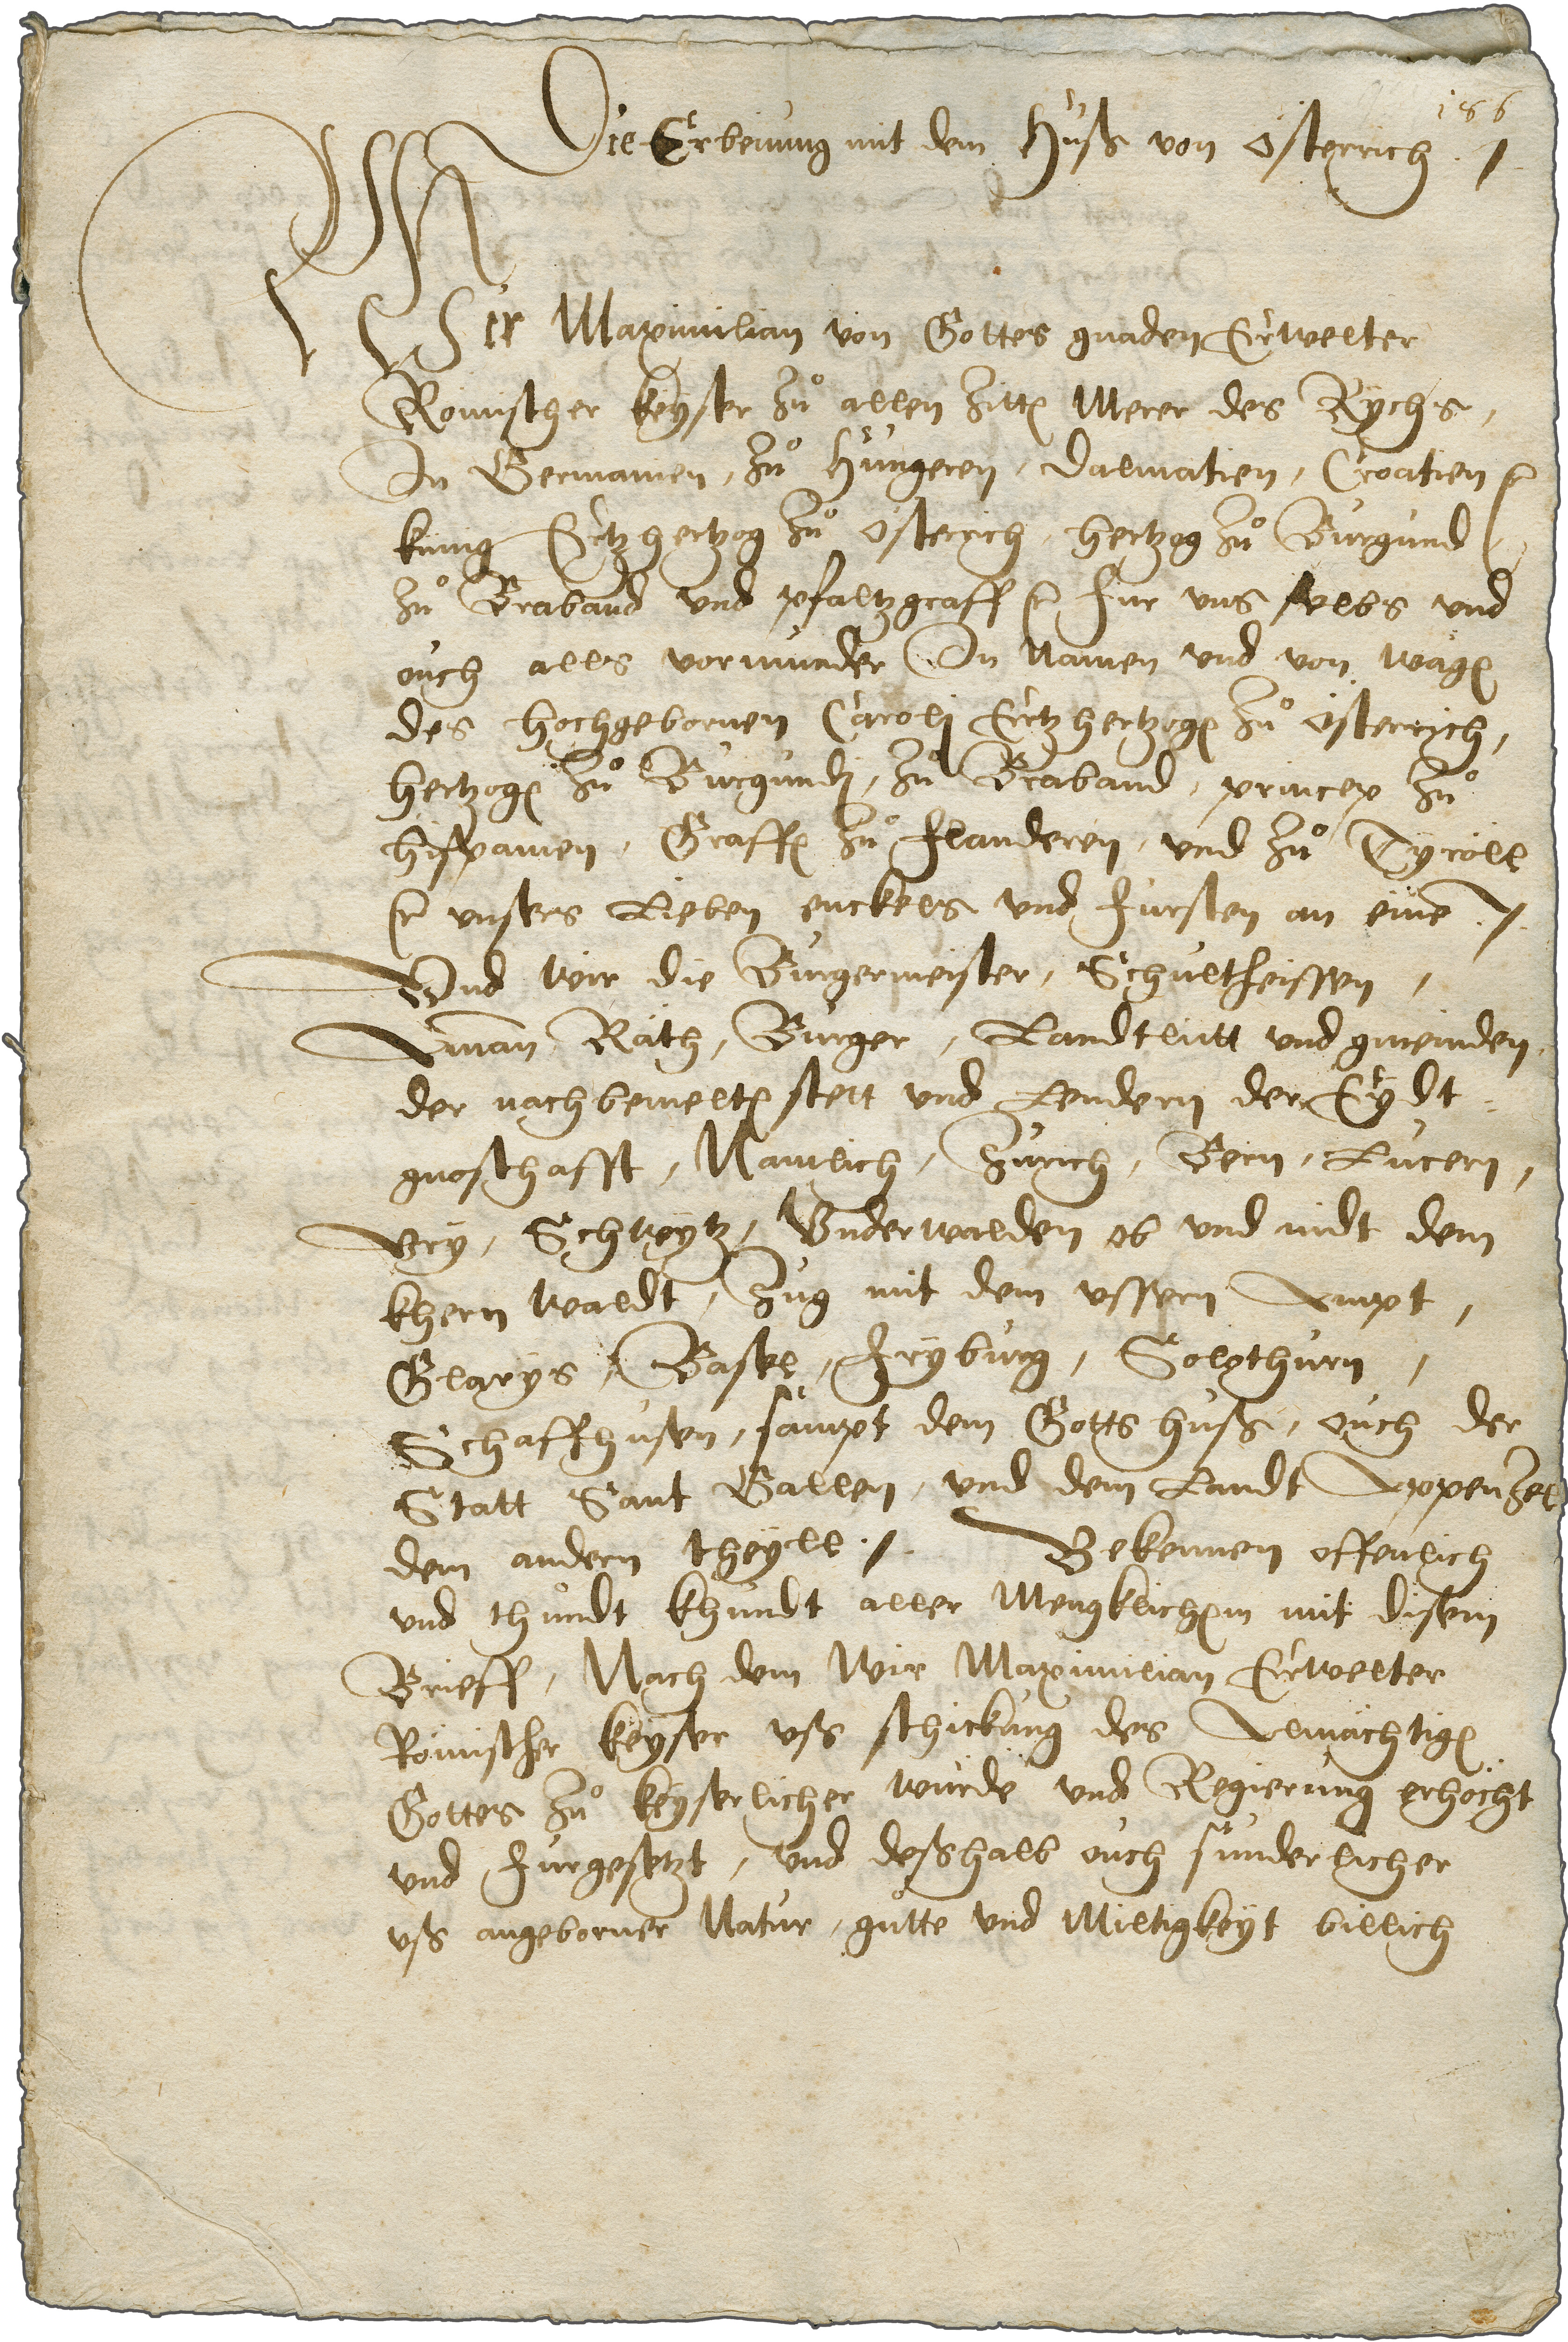 186
Die Erbeinung mit dem Huß von Österrich ./.
Wir Maximilian von Gottes gnaden Erwelter
Römischer keyser zů allen Zittē Merer des Rychs,
In Germanien, zů Hungeren, Dalmatien, Croatien ꝛc
kunig Ertzhertzog zů Österrich, hertzog zů Burgund,
zů Braband vnd pfaltzgraff ꝛc Fur vns selbs vnd
ouch alls vormunder In Namen vnd von wägē
des hochgebornen Caroli Ertzhertzogē zů Österrich,
hertzogē zů Burgundj, zů Braband, princep zů
hispanien, Graffē zů Flanderen, vnd zů Tyröll
ꝛc vnsers Lieben enckels vnd Fursten an eine ./.
Vnd wir die Burgermeister, Schultheissen,
Aman Räth, Burger, Landtlutt vnd gmeinden,
der nachbemeltē stett vnd Lendern der Eydt-
gnoschafft, Namlich, Zurich, Bern, Lucern,
Vry, Schweytz, Vnderwalden ob vnd nidt dem
khernwaldt, Zug mit dem vssern Ampt,
Glarys, Basel, Fryburg, Solothurn,
Schaffhusen, sampt dem Gottshuß, ouch der
Statt Sant Gallen, vnd dem Landt Appenzel
dem andern theyll ./. Bekennen offenlich
vnd thůndt khundt aller Mengklichem mit disem
Brieff, Nach dem Wir Maximilian Erwelter
Römischer keyser vß schickung des Almächtigē
Gottes zů keyserlicher würde vnd Regierung erhöcht
vnd Furgesetzt, vnd deßhalb ouch sunderlicher
vß angeborner Natur, gůtte vnd Miltigkeyt billich